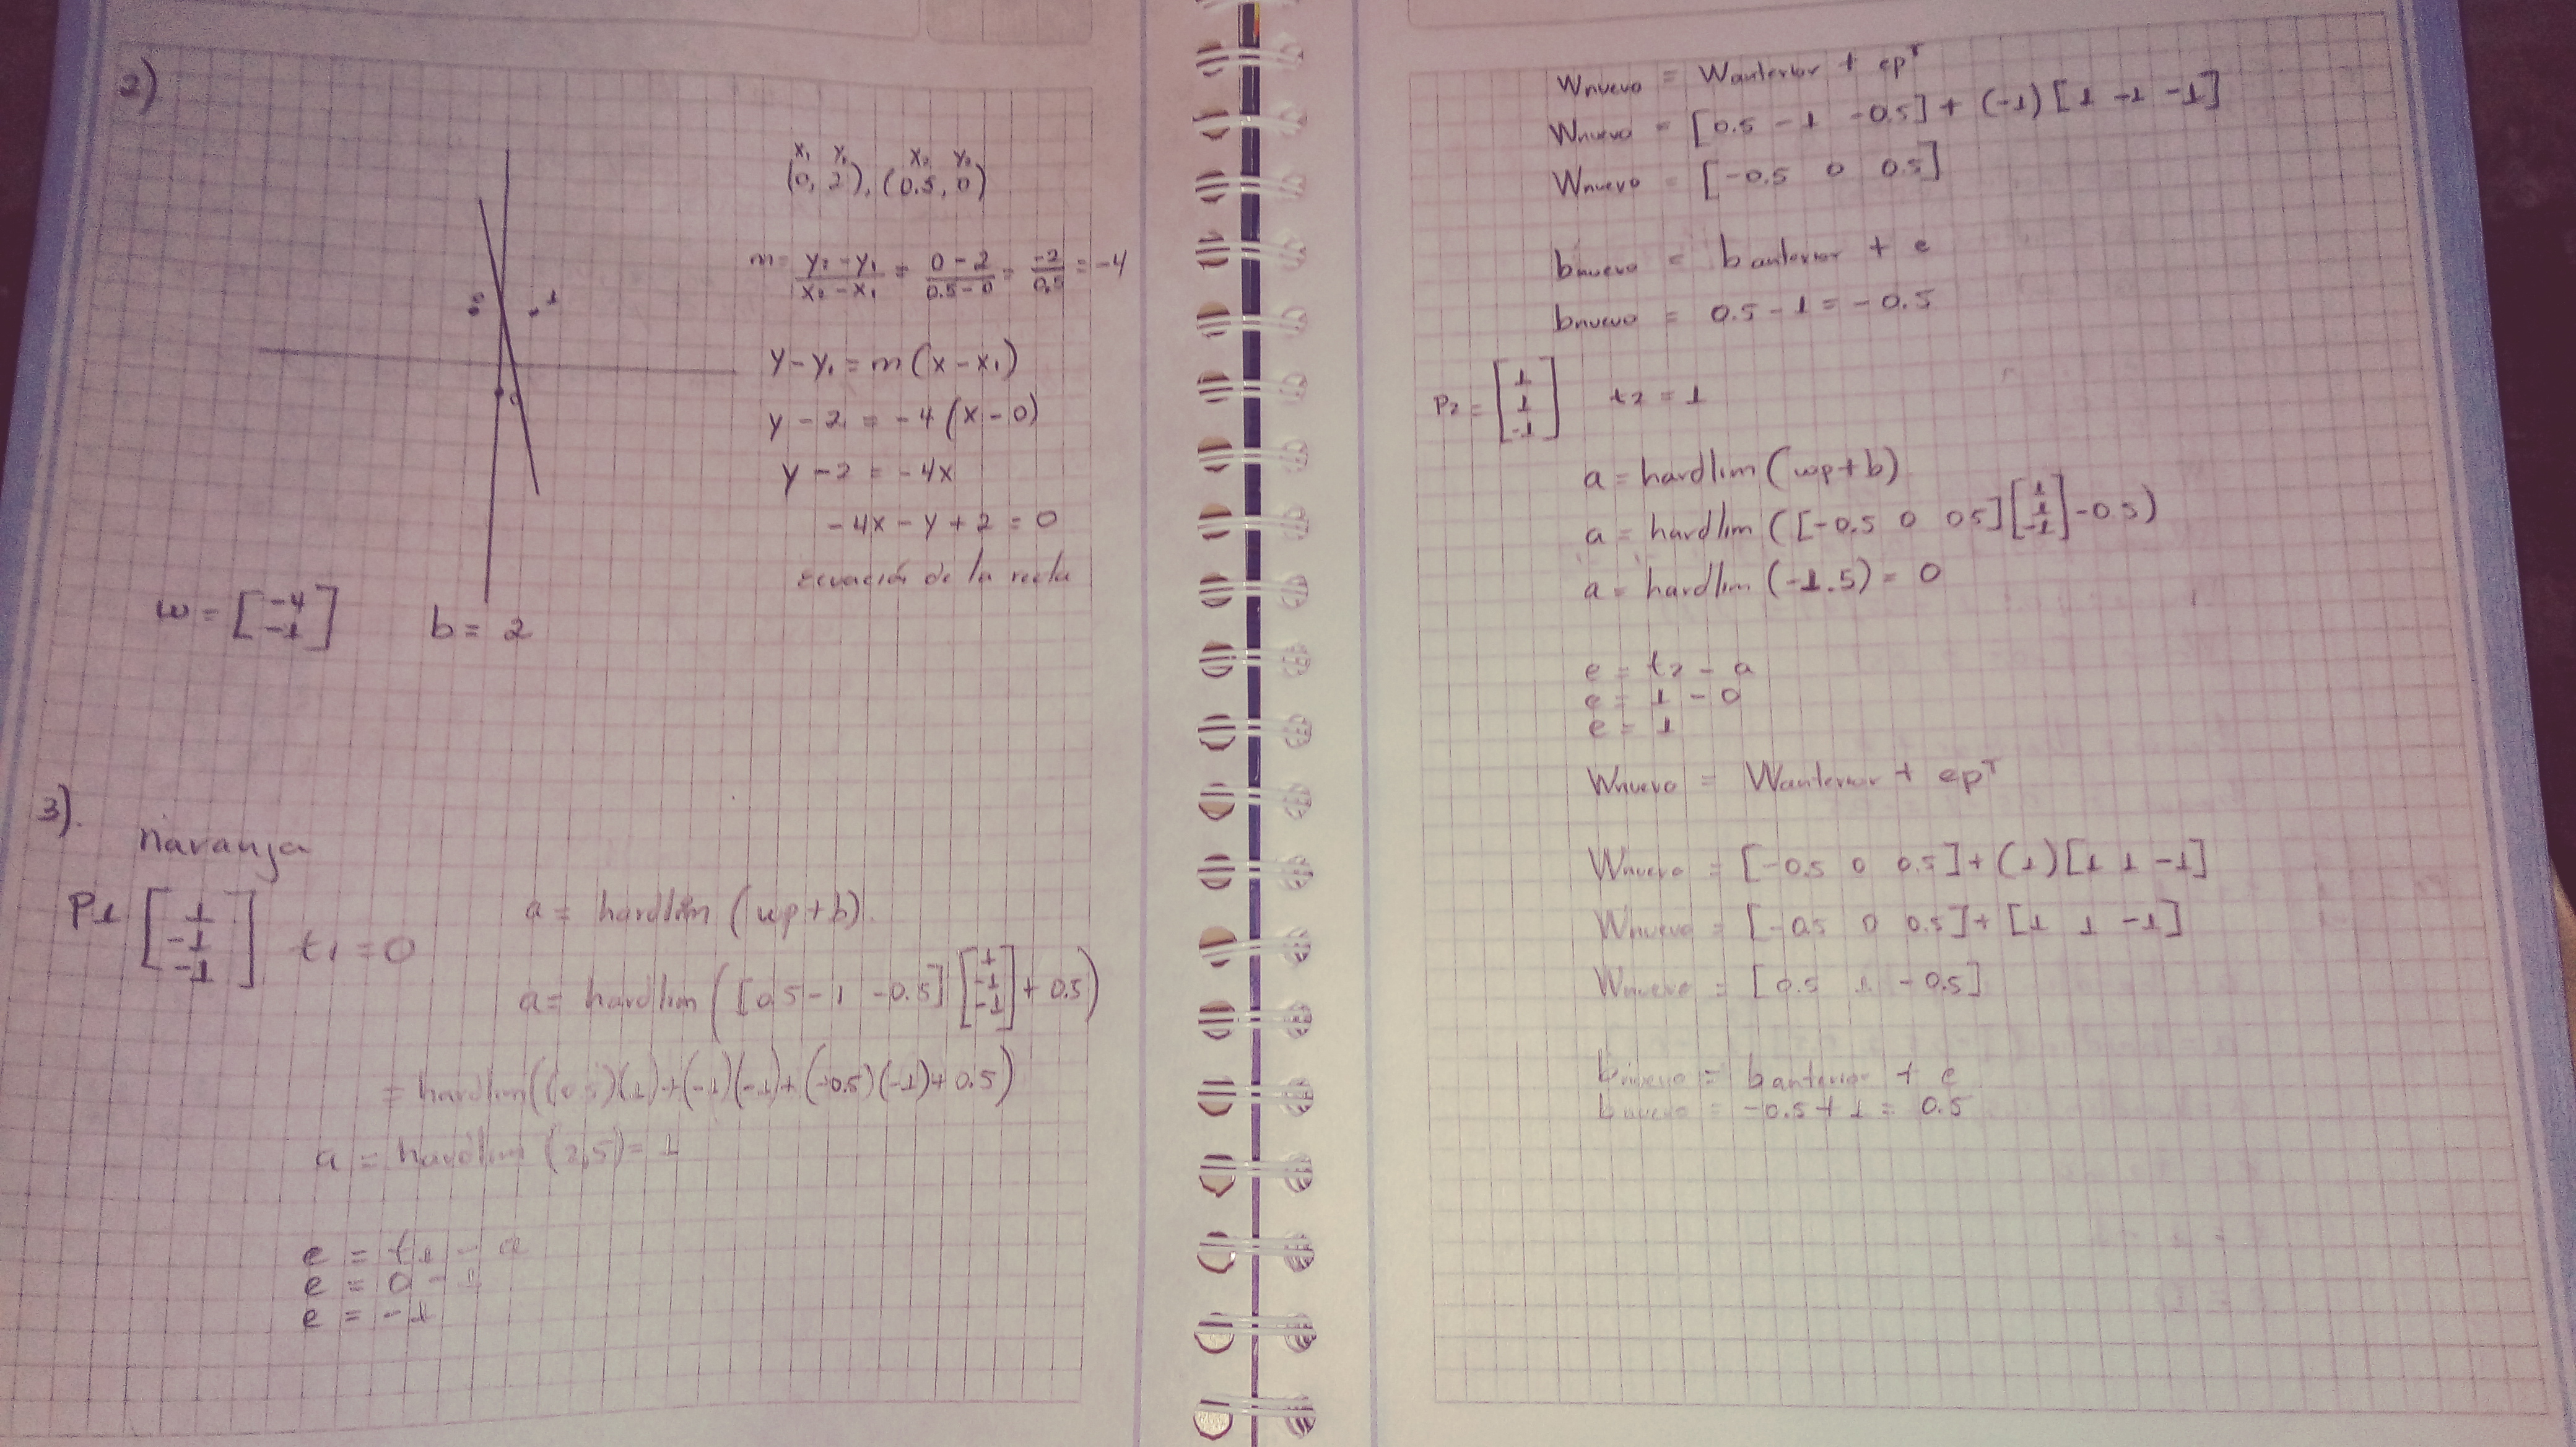 2)
x₁ y₁ x₂ y₂
(0, 2), (0.5, 0)
m = y₂ - y₁ / x₂ - x₁ = 0 - 2 / 0.5 - 0 = -2 / 0.5 = -4
0 1
y - y₁ = m(x - x₁)
0
y - 2 = -4(x - 0)
y - 2 = -4x
-4x - y + 2 = 0
ecuación de la recta
w = [-4 -1] b = 2
3).
naranja
P1 [1 -1 -1] t1 = 0
a = hardlim (wp + b).
a = hardlim ([0.5 -1 -0.5] [1 -1 -1] + 0.5)
= hardlim((0.5)(1)+(-1)(-1)+(-0.5)(-1)+0.5)
a = hardlim (2,5) = 1
e = t1 - a
e = 0 - 1
e = -1
Wnuevo = Wanterior + epᵀ
Wnuevo = [0.5 -1 -0.5] + (-1) [1 -1 -1]
Wnuevo = [-0.5 0 0.5]
bnuevo = banterior + e
bnuevo = 0.5 - 1 = -0.5
P2 = [1 1 -1] t2 = 1
a = hardlim (wp + b)
a = hardlim ([-0.5 0 05] [1 1 -1] - 0.5)
a = hardlim (-1.5) = 0
e = t2 - a
e = 1 - 0
e = 1
Wnuevo = Wanterior + epᵀ
Wnuevo = [-0.5 0 0.5] + (1) [1 1 -1]
Wnuevo = [-0.5 0 0.5] + [1 1 -1]
Wnuevo = [0.5 1 -0.5]
bnuevo = banterior + e
bnuevo = -0.5 + 1 = 0.5